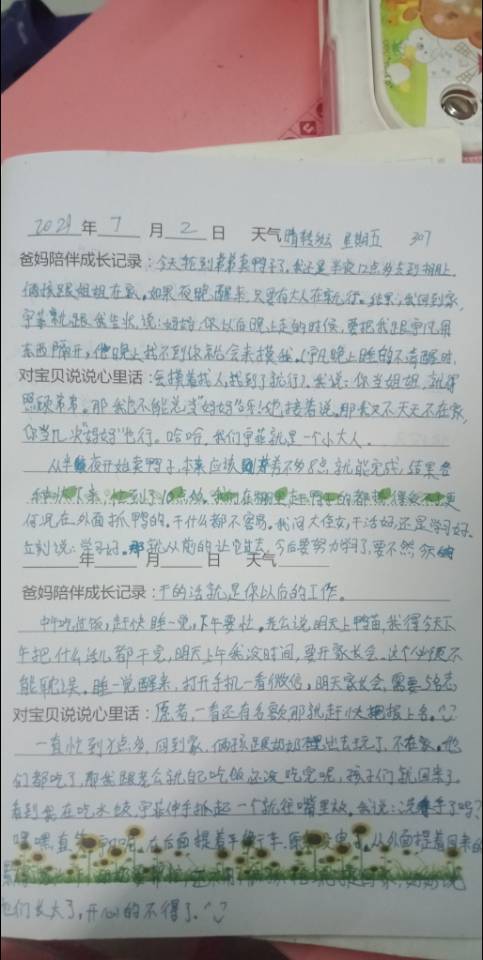 2021年 7 月 2 日 天气 晴转多云 星期五 307
爸妈陪伴成长记录：今天轮到弟弟卖鸭子了，我还是半夜12点多去到棚上，
俩孩跟姐姐在家，如果夜晚醒来，只要有大人在就行。结果，我回到家，
宇菲就跟我生气，说：妈妈，你以后晚上走的时候，要把我跟宇凡用
东西隔开，他晚上找不到你就会来摸我。(宇凡晚上睡的不清醒时，
对宝贝说说心里话：会摸着找人，找到了就行)。我说：你当姐姐，就得
照顾弟弟。那我也不能总当"妈妈"呀！她接着说。那我又不天天不在家，
你当几次"妈妈"也行。哈哈，我们宇菲就是一个小大人。
从半夜开始卖鸭子，本来应该 差不多8点，就能完成，结果
忙到了10点
何况在外面抓鸭的。干什么都不容易。我问大侄女，干活好，还是学习好。
立刻说：学习好。那就从前的让它过去，今后要努力学习，要不然，今天
年 月 日 天气
爸妈陪伴成长记录：干的活就是你以后的工作。
中午吃过饭，赶快睡一觉，下午要忙。老公说明天上鸭苗，我得今天下
午把什么活儿都干完，明天上午我没时间，要开家长会，这个必须不
能耽误。睡一觉醒来，打开手机一看微信，明天家长会，需要5名志
对宝贝说说心里话：愿者，一看还有名额，那就赶快报上名。
一直忙到7点多，回到家，俩孩跟奶奶 出去玩了，不在家。他
们都吃了，那我跟老公就自己吃饭，还没吃完呢，孩子们就回来了。
看到我在吃水饺，宇菲伸手抓起一个就往嘴里放。我说：洗手了吗？
嘿嘿，直笑 在后面提着平衡车， 没电了。从外面提着回来的
奶奶说
他们长大了，开心的不得了。